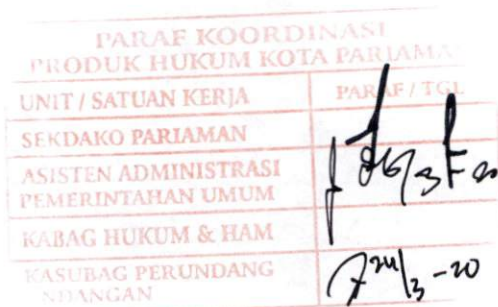 PARAF KOORDINASI
PRODUK HUKUM KOTA PARIAMA
UNIT / SATUAN KERJA PARAF / TGL
SEKDAKO PARIAMAN
ASISTEN ADMINISTRASI
PEMERINTAHAN UMUM
KABAG HUKUM & HAM
KASUBAG PERUNDANG
NDANGAN
24/3-20